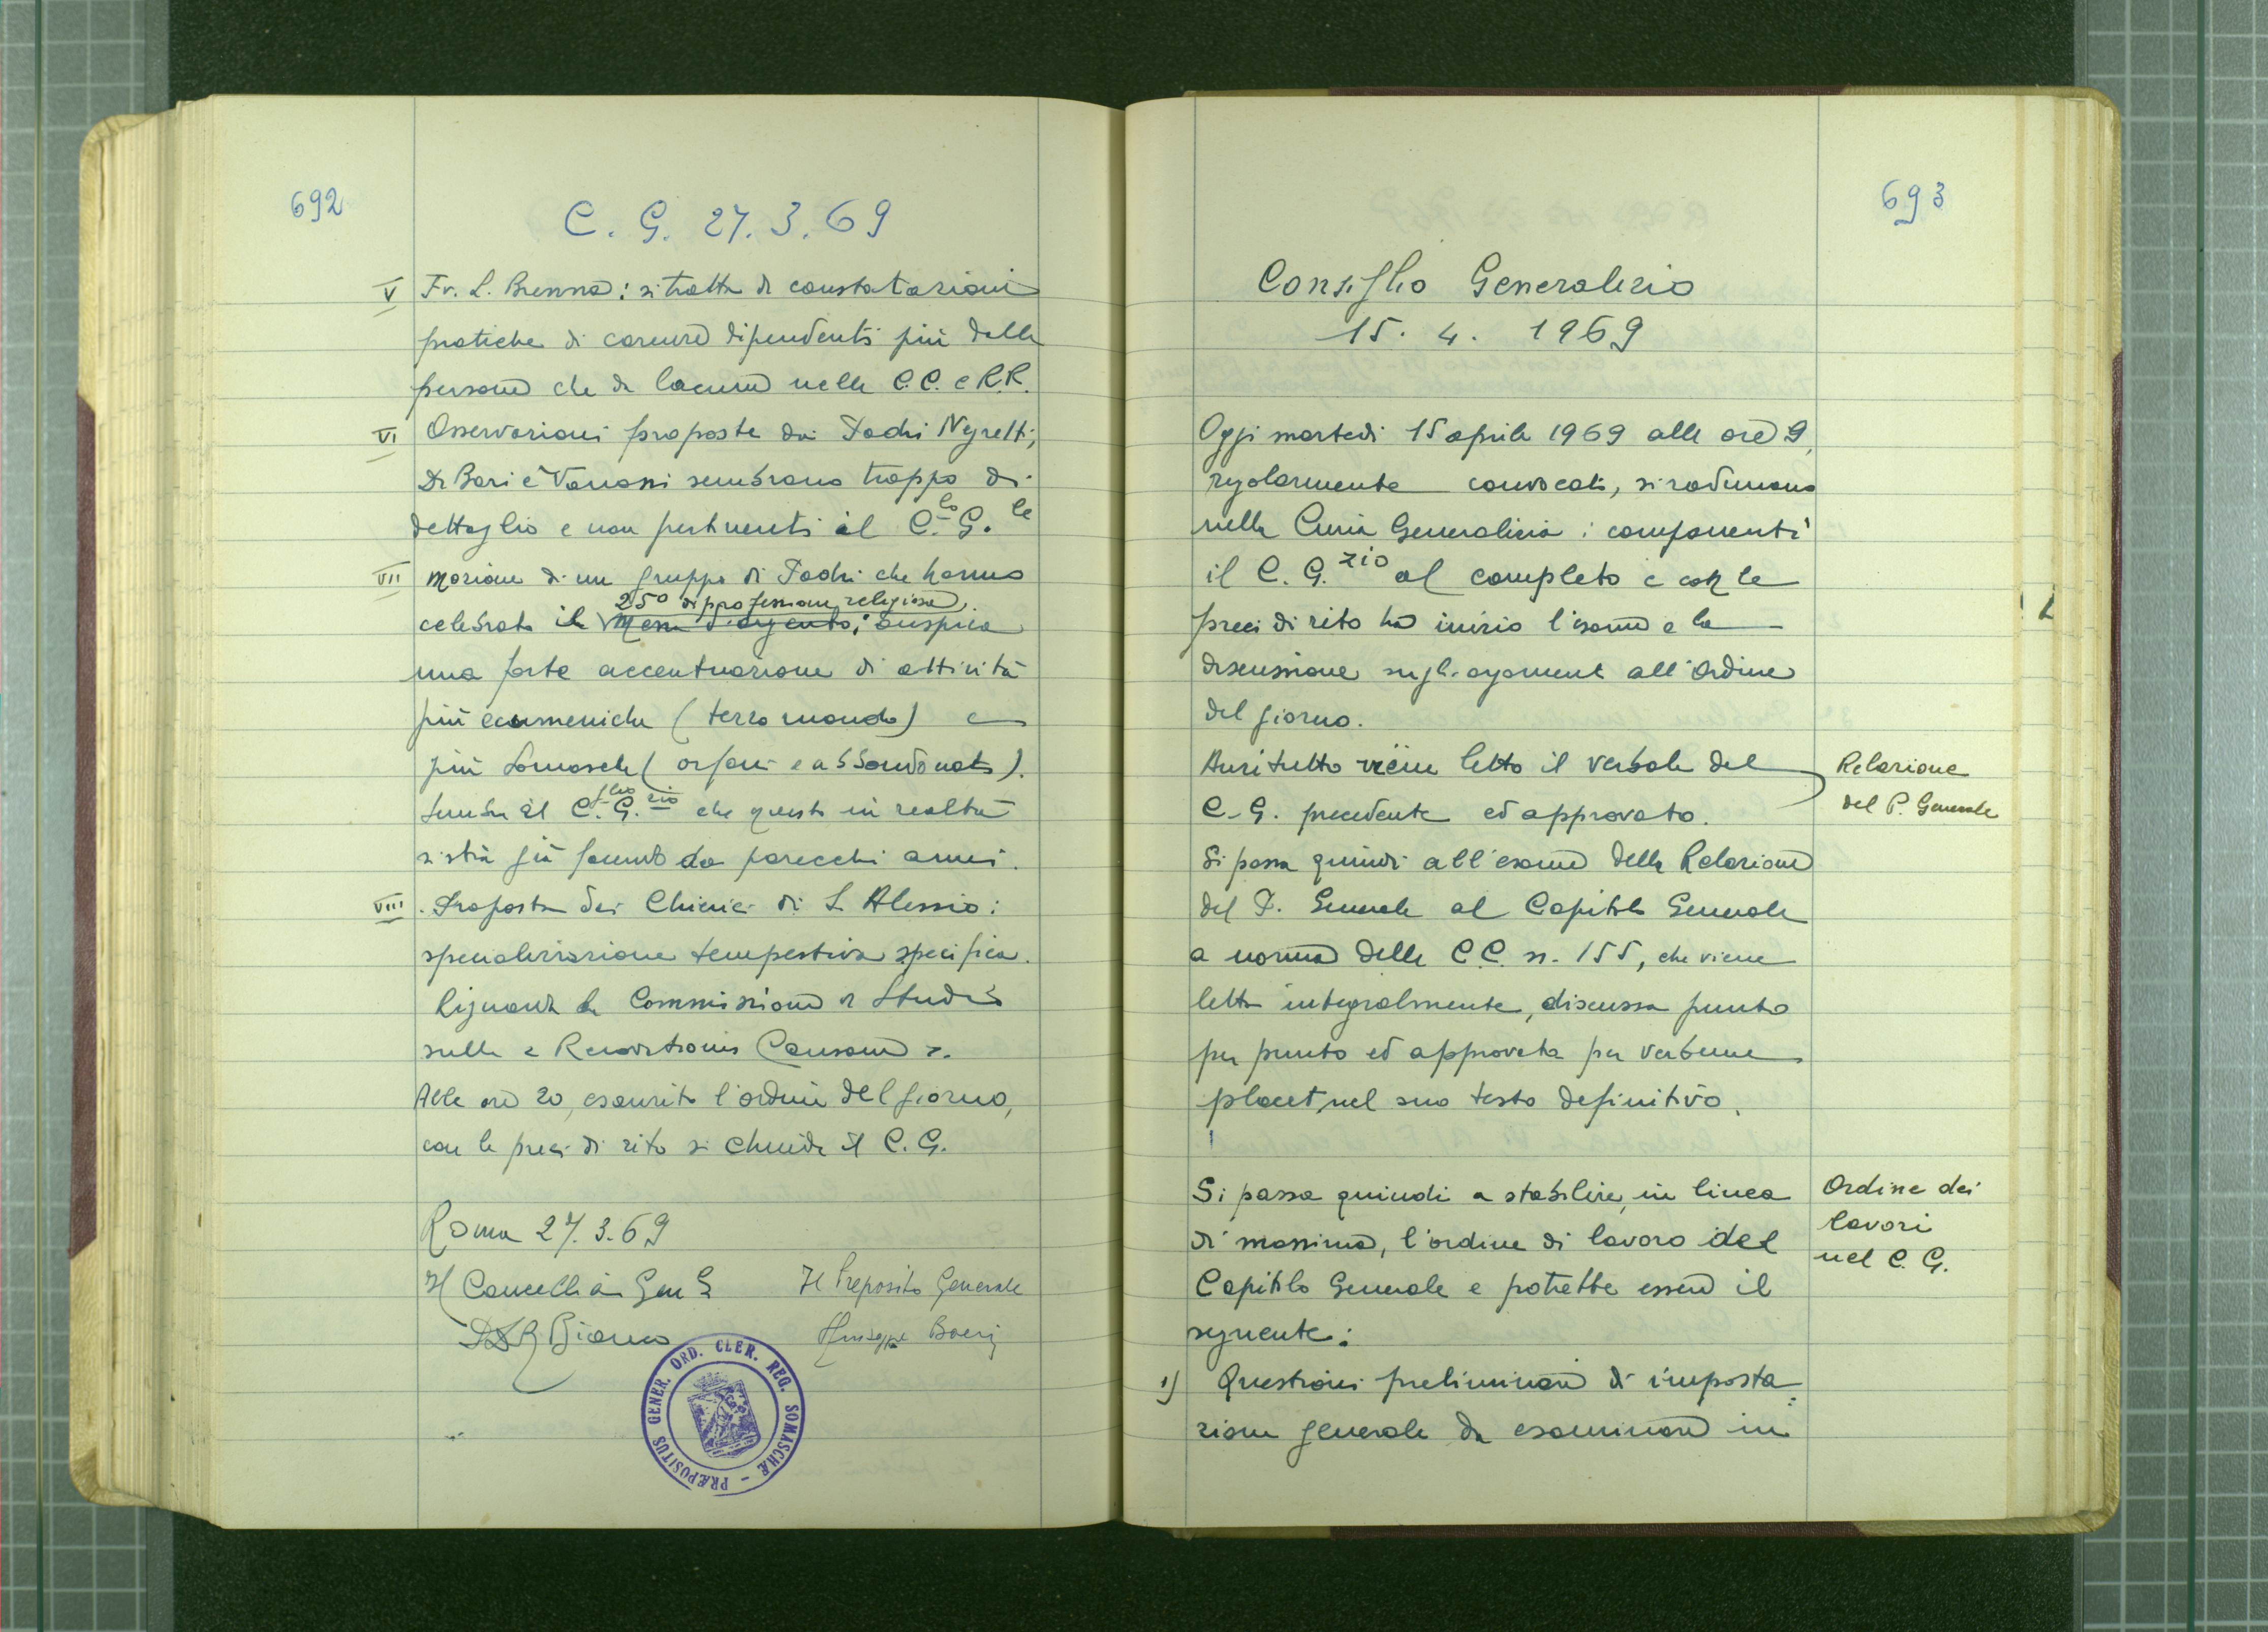 692
C. G. 27.3.69
V Fr. L. Brenna: si tratta di constatazioni
pratiche di carenze dipendenti più dalle
persone che da lacune nelle C.C. e R.R.
VI Osservazioni proposte dai Padri Negretti,
De Bari e Vanossi sembrano troppo di
dettaglio e non pertinenti al C.lo G.le
VII Mozione di un gruppo di Padri che hanno
25° di professione religiosa,
celebrato il Messa d'argento: auspica
una forte accentuazione di attività
più ecumeniche (terzo mondo) e
più Somasche (orfani e abbandonati).
Sembra al C.glio G.zio che questo in realtà
si stia già facendo da parecchi anni.
VIII Proposta dei Chierici di S. Alessio:
specializzazione tempestiva specifica.
Riguarda la Commissione di Studio
sulla « Renovationis Causam ».
Alle ore 20, esaurito l'ordine del giorno,
con le preci di rito si chiude il C.G.
Roma 27.3.69
Il Cancelliere Gen. Il Preposito Generale
Bianco Giuseppe Boeri
PRÆPOSITUS GENER. ORD. CLER. REG. SOMASCHÆ
693
Consiglio Generalizio
15. 4. 1969
Oggi martedì 15 aprile 1969 alle ore 9,
regolarmente convocati, si radunano
nella Curia Generalizia i componenti
il C. G.zio al completo e con le
preci di rito ha inizio l'esame e la
discussione sugli argomenti all'Ordine
del giorno.
Anzitutto viene letto il verbale del
C. G. precedente ed approvato.
Relazione
del P. Generale
Si passa quindi all'esame della Relazione
del P. Generale al Capitolo Generale
a norma delle C.C. n. 155, che viene
letta integralmente, discussa punto
per punto ed approvata per verbum
placet, nel suo testo definitivo.
Si passa quindi a stabilire, in linea
di massima, l'ordine di lavoro del
Capitolo Generale e potrebbe essere il
seguente:
Ordine dei
lavori
nel C. G.
1) Questioni preliminari di imposta
zione generale da esaminare in